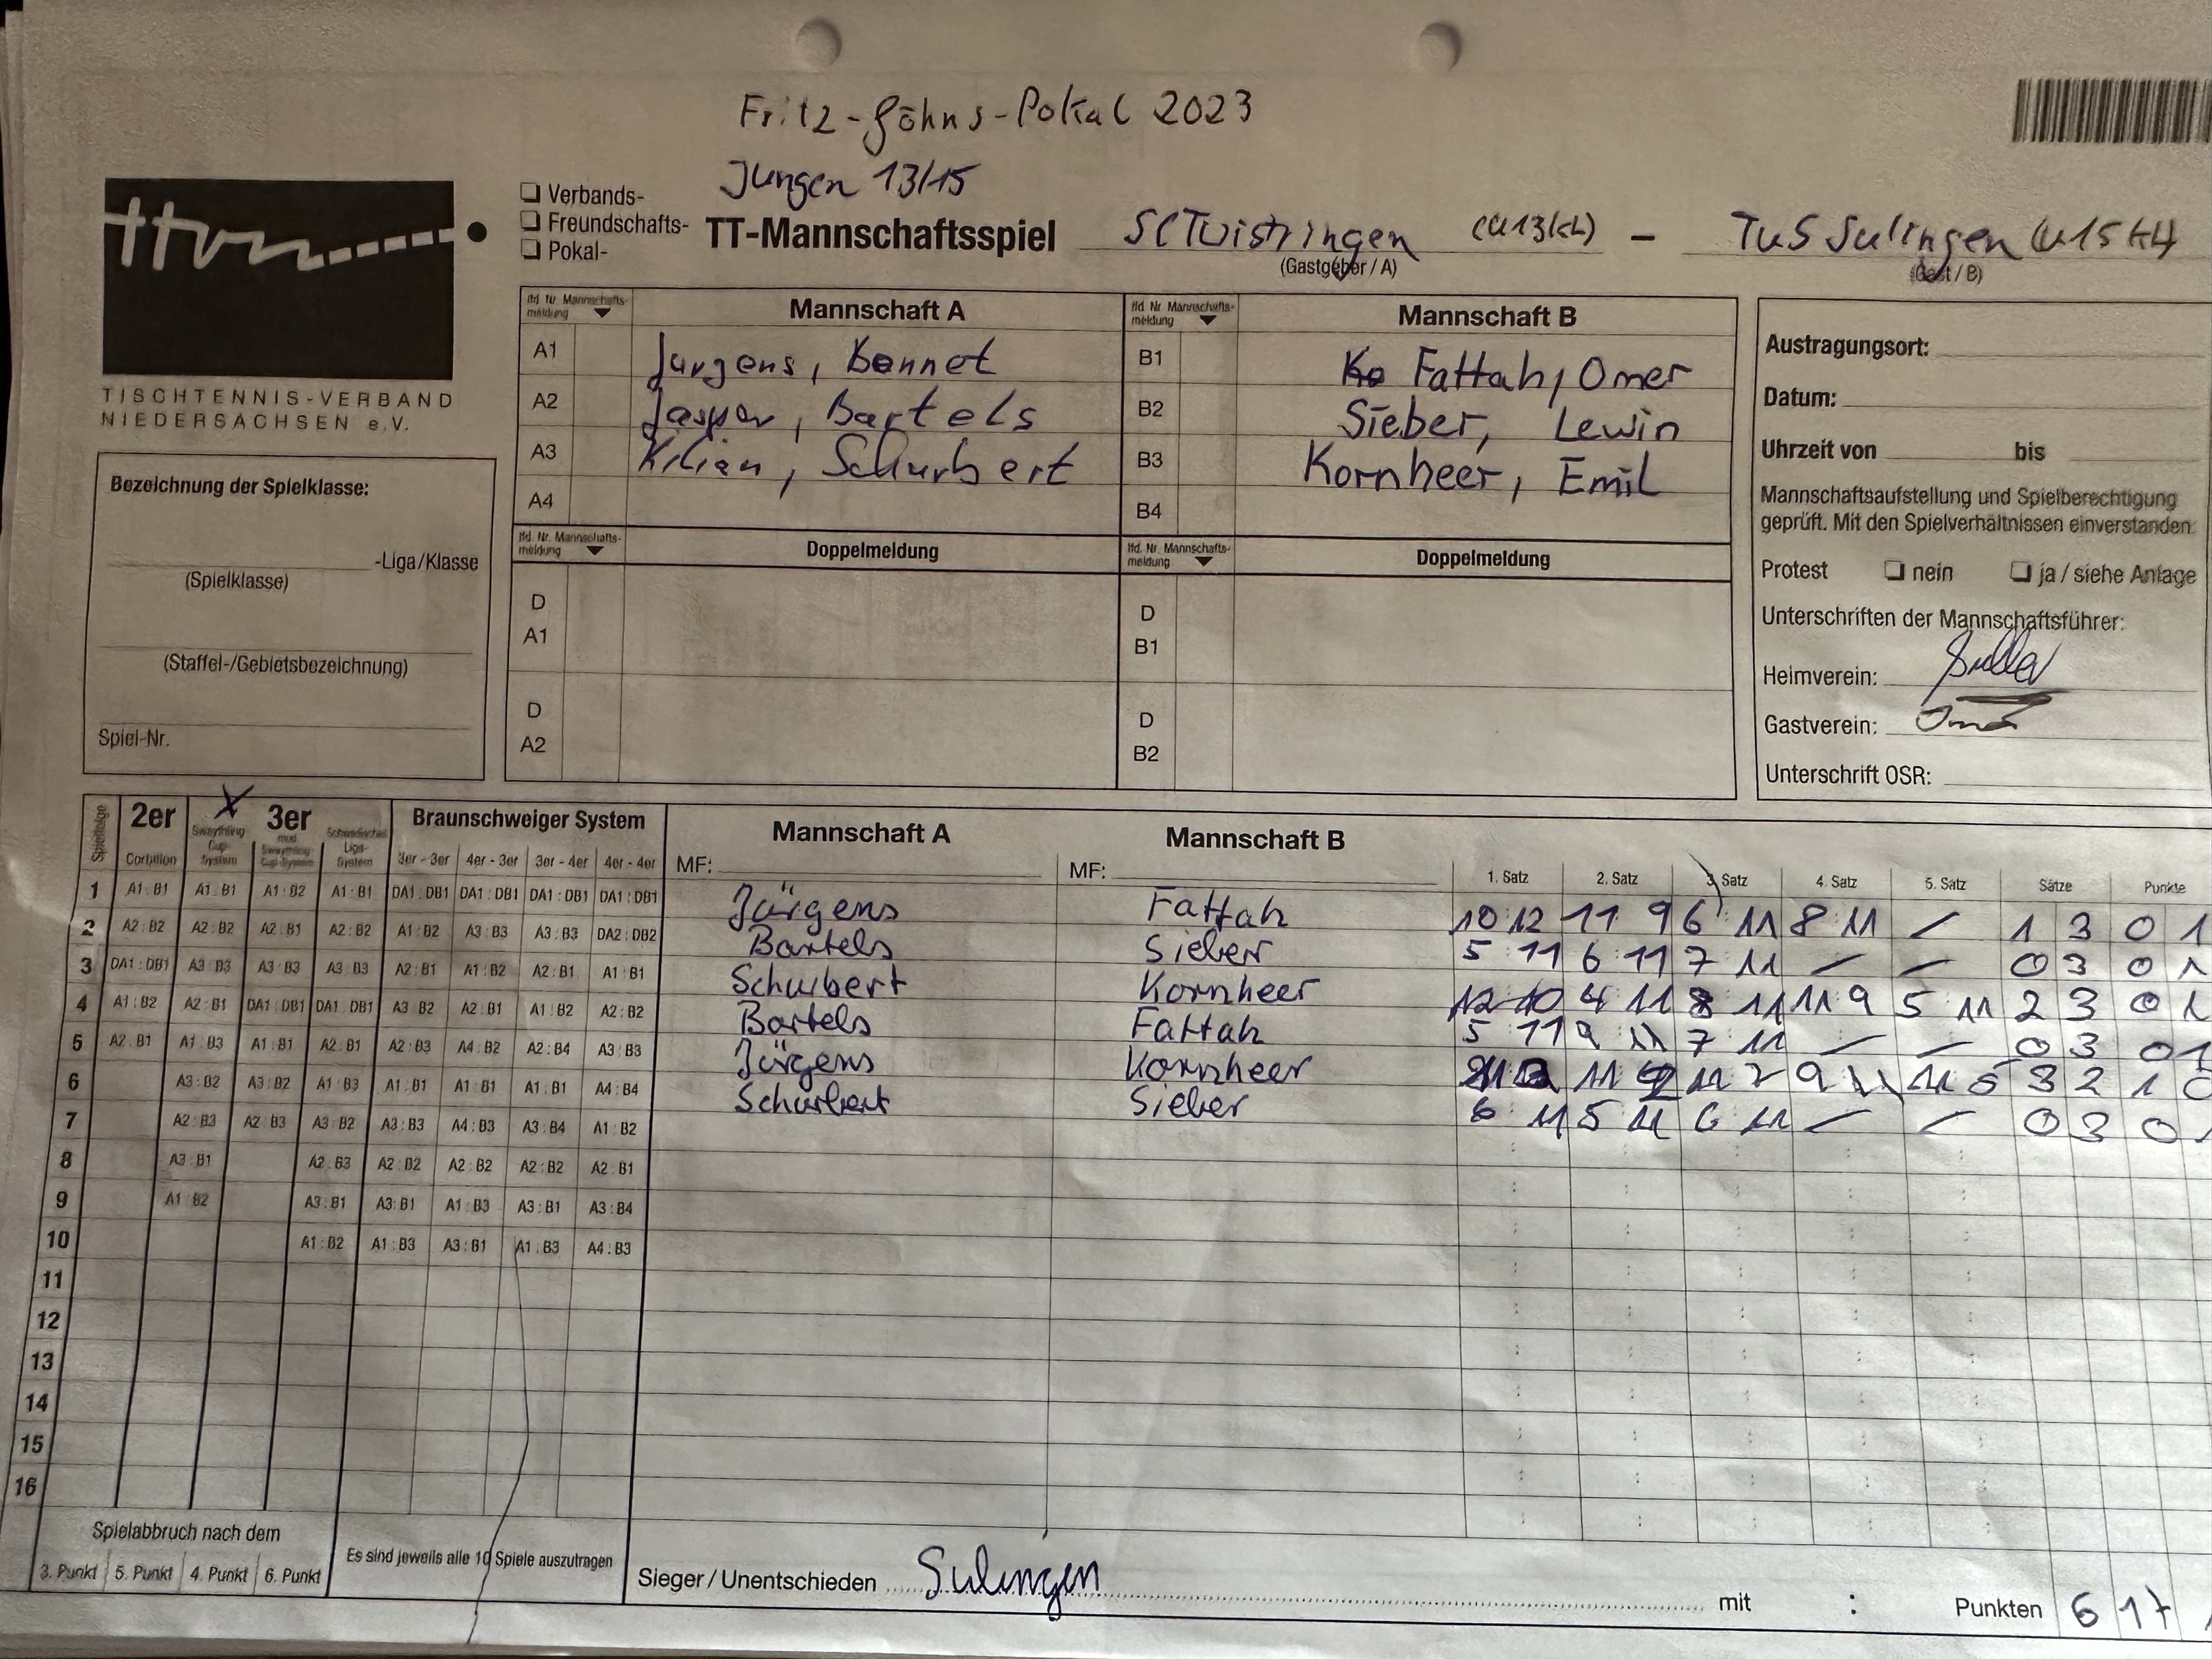 Fritz-Göhns-Pokal 2023
Jungen 13/15
ttvn
TISCHTENNIS-VERBAND
NIEDERSACHSEN e.V.
❏ Verbands-
❏ Freundschafts-
❏ Pokal-
TT-Mannschaftsspiel SC Twistringen (U13KL) – TuS Sulingen (U15 KL)
(Gastgeber / A) (Gast / B)
lfd. Nr. Mannschafts-meldung Mannschaft A
A1 Jürgens, Bennet
A2 Jasper, Bartels
A3 Kilian, Schurbert
A4
lfd. Nr. Mannschafts-meldung Doppelmeldung
D A1
D A2
lfd. Nr. Mannschafts-meldung Mannschaft B
B1 Ko Fattah, Omer
B2 Sieber, Lewin
B3 Kornheer, Emil
B4
lfd. Nr. Mannschafts-meldung Doppelmeldung
D B1
D B2
Bezeichnung der Spielklasse:
-Liga/Klasse
(Spielklasse)
(Staffel-/Gebietsbezeichnung)
Spiel-Nr.
Austragungsort:
Datum:
Uhrzeit von bis
Mannschaftsaufstellung und Spielberechtigung
geprüft. Mit den Spielverhältnissen einverstanden.
Protest ❏ nein ❏ ja / siehe Anlage
Unterschriften der Mannschaftsführer:
Heimverein:
Gastverein: Omer
Unterschrift OSR:
Spielfolge 2er X 3er Braunschweiger System Mannschaft A Mannschaft B
Corbillon Swaythling Cup-System mod. Swaythling Cup-System Schwedisches Liga-System 3er - 3er 4er - 3er 3er - 4er 4er - 4er MF: MF: 1. Satz 2. Satz 3. Satz 4. Satz 5. Satz Sätze Punkte
1 A1 : B1 A1 : B1 A1 : B2 A1 : B1 DA1 : DB1 DA1 : DB1 DA1 : DB1 DA1 : DB1 Jürgens Fattah 10 12 11 9 6 11 8 11 – 1 3 0 1
2 A2 : B2 A2 : B2 A2 : B1 A2 : B2 A1 : B2 A3 : B3 A3 : B3 DA2 : DB2 Bartels Sieber 5 11 6 11 7 11 – – 0 3 0 1
3 DA1 : DB1 A3 : B3 A3 : B3 A3 : B3 A2 : B1 A1 : B2 A2 : B1 A1 : B1 Schubert Kornheer 12 10 4 11 8 11 11 9 5 11 2 3 0 1
4 A1 : B2 A2 : B1 DA1 : DB1 DA1 : DB1 A3 : B2 A2 : B1 A1 : B2 A2 : B2 Bartels Fattah 5 11 9 11 7 11 – – 0 3 0 1
5 A2 : B1 A1 : B3 A1 : B1 A2 : B1 A2 : B3 A4 : B2 A2 : B4 A3 : B3 Jürgens Kornheer 11 11 9 11 7 9 11 11 5 3 2 1 0
6 A3 : B2 A3 : B2 A1 : B3 A1 : B1 A1 : B1 A1 : B1 A4 : B4 Schurbert Sieber 6 11 5 11 6 11 – – 0 3 0
7 A2 : B3 A2 : B3 A3 : B2 A3 : B3 A4 : B3 A3 : B4 A1 : B2
8 A3 : B1 A2 : B3 A2 : B2 A2 : B2 A2 : B2 A2 : B1
9 A1 : B2 A3 : B1 A3 : B1 A1 : B3 A3 : B1 A3 : B4
10 A1 : B2 A1 : B3 A3 : B1 A1 : B3 A4 : B3
11
12
13
14
15
16
Spielabbruch nach dem
3. Punkt 5. Punkt 4. Punkt 6. Punkt
Es sind jeweils alle 10 Spiele auszutragen
Sieger / Unentschieden Sulingen mit : Punkten 6 17